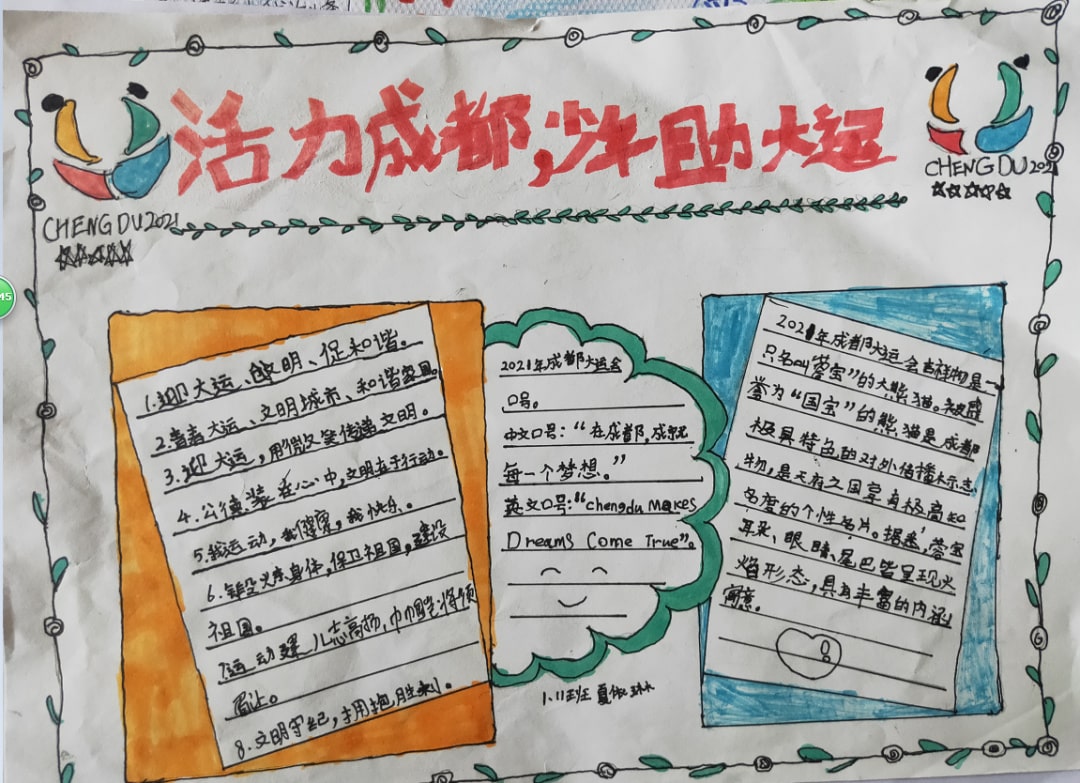 活力成都,少年助大运
CHENG DU 2021
CHENG DU 2021
1.迎大运、创文明、促和谐。
2.喜喜大运、文明城市、和谐家园。
3.迎大运,用微笑传递文明。
4.公德装在心中,文明在于行动。
5.我运动,我健康,我快乐。
6.锻炼身体,保卫祖国,建设
祖国。
7.运动健儿志高扬,巾帼
眉让。
8.文明守纪,拥抱胜利。
2021年成都大运会
口号。
中文口号:“在成都,成就
每一个梦想。”
英文口号:“chengdu Makes
Dreams Come True”。
1.11班
2021年成都大运会吉祥物是一
只名叫“蓉宝”的大熊猫。被
誉为“国宝”的熊猫是成都
极具特色的对外传播标志
物,是天府之国享有极高知
名度的个性名片。据悉,蓉宝
耳朵、眼睛、尾巴皆呈现火
焰形态,具有丰富的内涵
寓意。